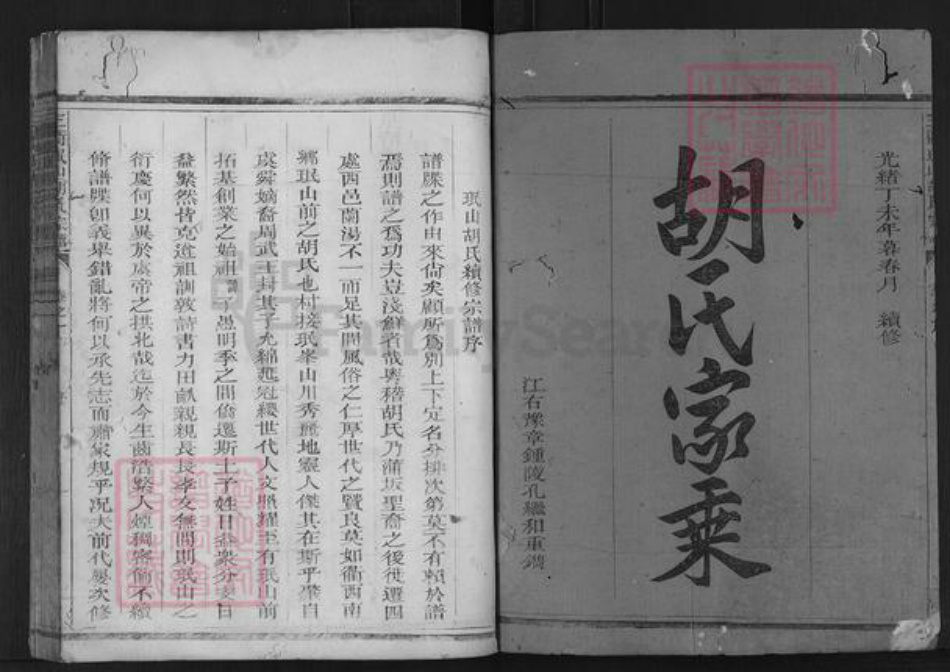 光緒丁未年暮春月 續修
胡氏家乘
江右豫章鍾陵孔繼和重鐫
珉山胡氏續修宗譜序
譜牒之作由來尙矣顧所爲別上下定名分排次第莫不有賴於譜
焉則譜之爲功夫豈淺鮮者哉粤稽胡氏乃蒲坂聖裔之後徙遷四
處西邑蘭湯不一而足其間風俗之仁厚世代之賢良莫如衢西南
鄉珉山前之胡氏也村接珉峯山川秀麗地靈人傑其在斯乎溯自
虞舜嫡裔周武王封其子允綿延冠纓世代人文照耀至有珉山前
拓基創業之始祖 子愚明季之間僑遷斯土子姓日益衆分支日
益繁然皆克遵祖訓敦詩書力田畝親親長長孝友無間則珉山之
衍慶何以異於虞帝之拱北哉迄於今生齒浩繁人煙稠密倘不續
修譜牒卽義舉錯亂將何以承先志而肅家規乎况夫前代屢次修
FamilySearch